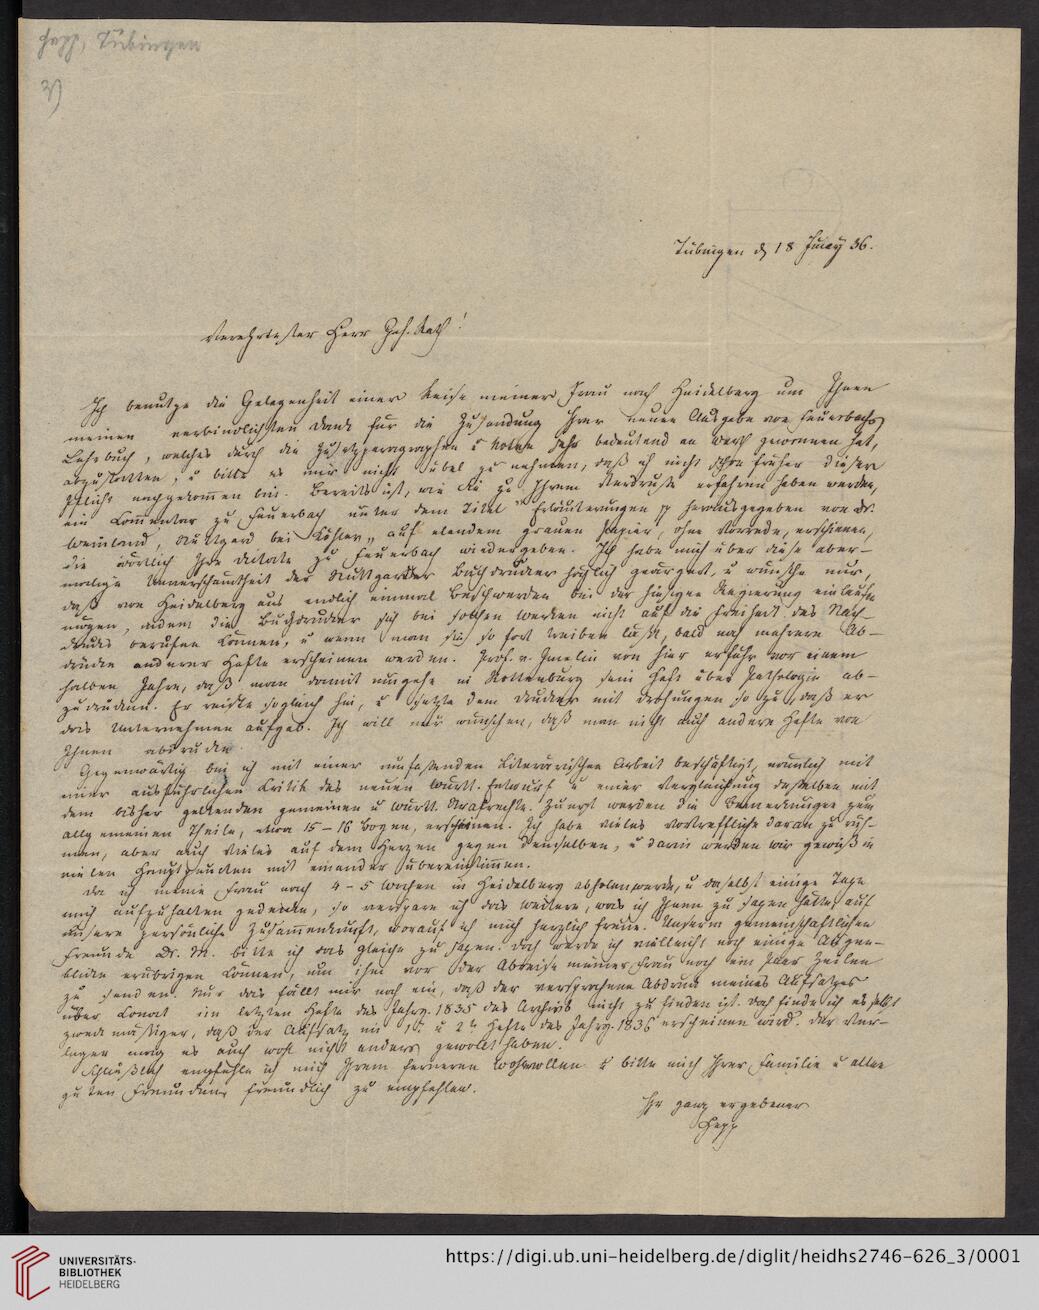 Hepp, Tübingen
3)
Tübingen d 18 36.
Verehrtester Herr Geh. Rath!
Ich benutze die Gelegenheit einer Reise meiner Frau nach Heidelberg um Ihnen
meinen verbindlichsten Dank für die Zusendung Ihrer neuen Ausgabe von Feuerbachs
Lehrbuch, welches durch die Zusatzparagraphen u Noten sehr bedeutend an Werth gewonnen hat,
abzustatten, u bitte es mir nicht übel zu nehmen, daß ich nicht schon früher dieser
Pflicht nachgekommen bin. Bereits ist, wie Sie zu Ihrem Verdrusse erfahren haben werden,
ein Commentar zu Feuerbach unter dem Titel "Erläuterungen p herausgegeben von Dr.
Stuttgard bei Köhler" auf elendem grauen Papier, ohne Vorrede, erschienen,
die wörtlich Ihre Dictate zu Feuerbach wiedergeben. Ich habe mich über diese aber-
malige Unverschämtheit der Stuttgarder Buchdrucker höchlich geärgert, u wünsche nur,
daß von Heidelberg aus endlich einmal Beschwerden bei der hiesigen Regierung einlaufen
mögen, indem die Buchdrucker sich bei solchen Werken nicht auf die Freiheit des Nach-
drucks berufen können, u wenn man sie so fort treiben läßt, bald noch mehrere Ab-
drucke anderer Hefte erscheinen werden. Prof. v. Gmelin von hier erfuhr vor einem
halben Jahre, daß man damit umgehe in Rottenburg sein Heft über Pathologie ab-
zudrucken. Er reiste sogleich hin, u setzte dem Drucker mit Drohungen so zu, daß er
das Unternehmen aufgab. Ich will nur wünschen, daß man nicht auch andere Hefte von
Ihnen abdrucke.
Gegenwärtig bin ich mit einer umfassenden literärischen Arbeit beschäftigt, nämlich mit
einer ausführlichen Critik des neuen württ. Entwurfs u einer Vergleichung desselben mit
dem bisher geltenden gemeinen u württ. Strafrechte. Zuerst werden die Bemerkungen zum
allgemeinen Theile, etwa 15 – 16 Bogen, erscheinen. Ich habe vieles vortreffliche daran zu rüh-
men, aber auch vieles auf dem Herzen gegen denselben, u darin werden wir gewiß in
vielen Hauptpunkten mit einander übereinstimmen.
Da ich meine Frau nach 4 – 5 Wochen in Heidelberg abholen werde, u daselbst einige Tage
mich aufzuhalten gedenke, so verspare ich das weitere, was ich Ihnen zu sagen hätte, auf
unsere persönliche Zusammenkunft, worauf ich mich herzlich freue. Unserm gemeinschaftlichen
Freunde Dr. M. bitte ich das gleiche zu sagen. Doch werde ich vielleicht noch einige Augen-
blicke erübrigen können, um ihm vor der Abreise meiner Frau noch ein Paar Zeilen
zu senden. Nur das fällt mir noch ein, daß der versprochene Abdruck meines Aufsatzes
über im letzten Hefte des Jahrg. 1835 des Archivs nicht zu finden ist. Doch finde ich es selbst
zweckmäßiger, daß der Aufsatz im 1n u 2n Hefte des Jahrg. 1836 erscheinen wird. Der Ver-
leger mag es auch wohl nicht anders gewollt haben.
Schlüßlich empfehle ich mich Ihrem ferneren Wohlwollen u bitte mich Ihrer Familie u allen
guten Freunden freundlich zu empfehlen.
Ihr ganz ergebener
Hepp
UNIVERSITÄTS-
BIBLIOTHEK
HEIDELBERG
https://digi.ub.uni-heidelberg.de/diglit/heidhs2746-626_3/0001